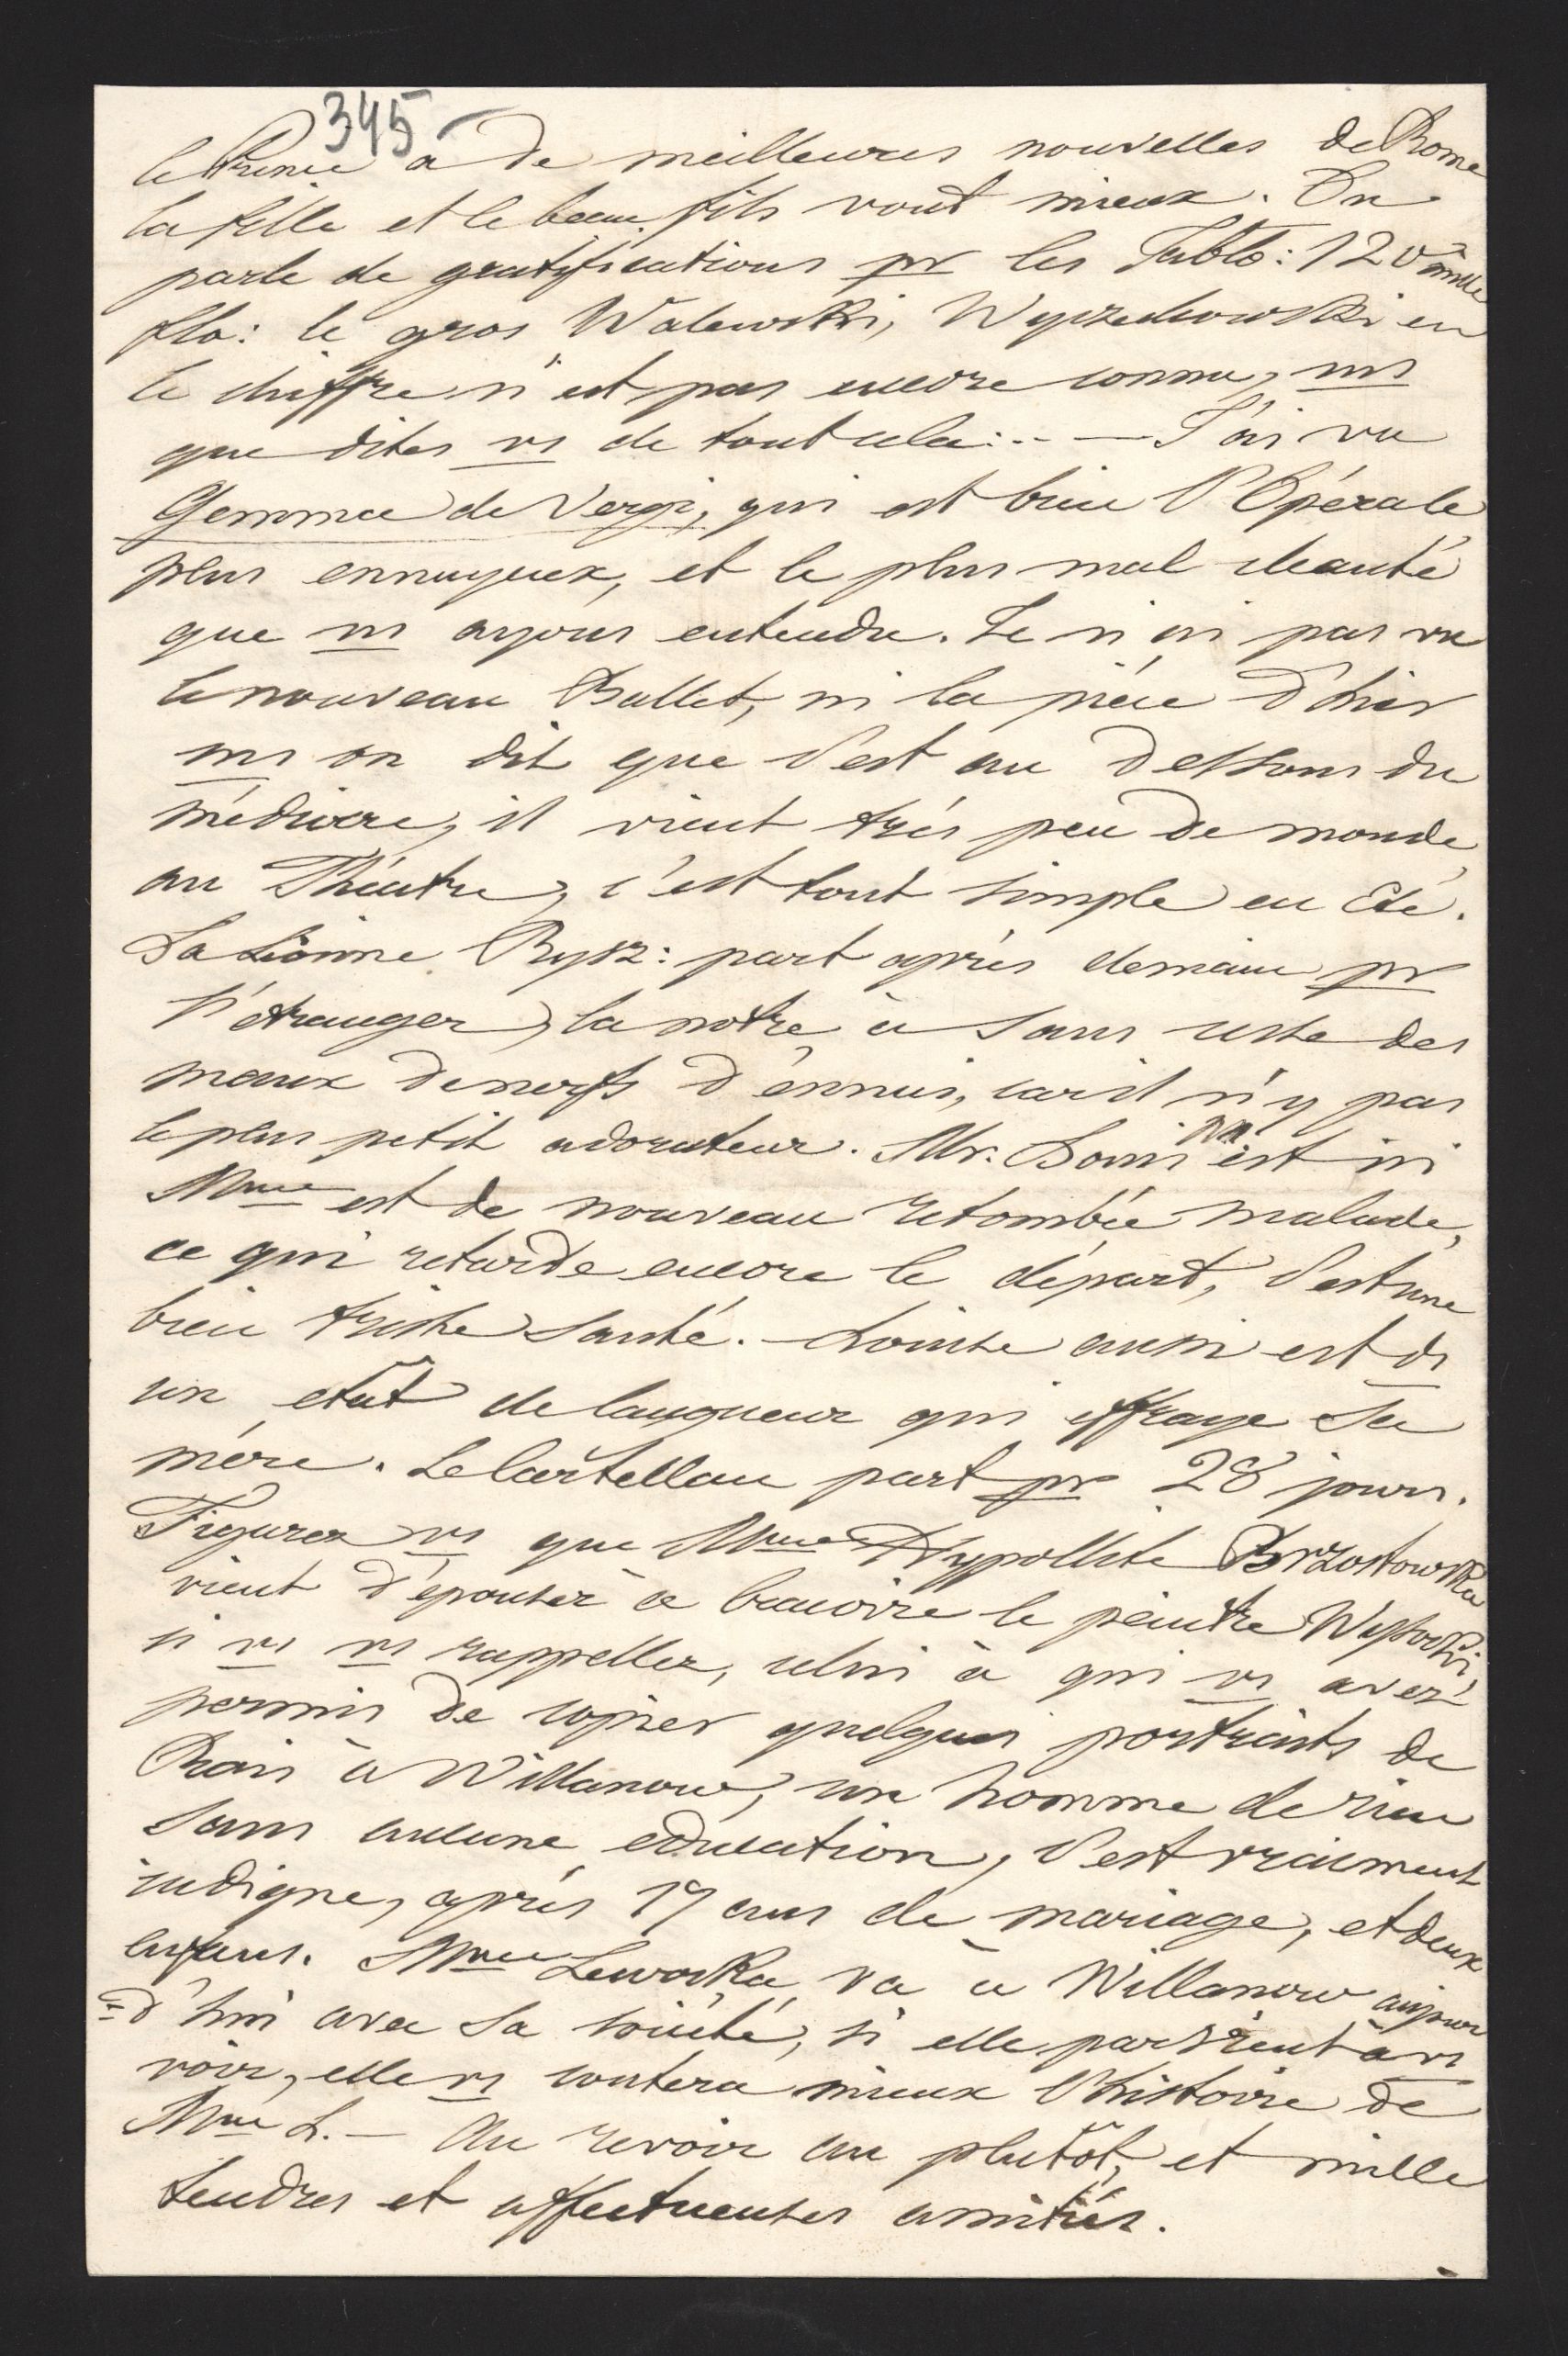 345
le Prince a de meilleures nouvelles de Rome
la fille et le beau fils vont mieux. On
parle de gratifications pr les Jabło: 120 mille
flo: le gros Walewski, Wyczechowski en
le chiffre n'est pas encore connu, ms
que dites vs de tout cela:.. — J'ai vu
Gemma de Vergi, qui est bien l'Opéra le
plus ennuyeux, et le plus mal chanté
que ns ayons entendu. Je n'ai pas vu
le nouveau Ballet, ni la pièce d'hier
ms on dit que c'est au dessous du
médiocre, il vient très peu de monde
au Théatre, c'est tout simple en Eté.
La Lionne Rysz: part après demain pr
l'étranger, la notre a sans cesse des
maux de nerfs d'ennui, car il n'y pas
le plus petit adorateur. Mr. est ici
Mme est de nouveau retombée malade,
ce qui retarde encore le départ, c'est une
bien triste santé. - Louise aussi est ds
un etat de langueur qui effraye sa
mère. Le Castellan part pr 28 jours.
Figurez vs que Mme Hypollite Brzostowska
vient d'épouser à ce le peintre
si vs vs rappellez, celui à qui vs avez
permis de copier quelques portraits de
Rois à Willanow, un homme de rien
sans aucune education, c'est vraiment
indigne, après 17 ans de mariage, et deux
enfans. Mme Lewocka va à Willanow aujour
=d'hui avec sa société, si elle parvient à vs
voir, elle vs contera mieux l'histoire de
Mme L. — Au revoir au plutôt, et mille
tendres et affectueuses amitiés.